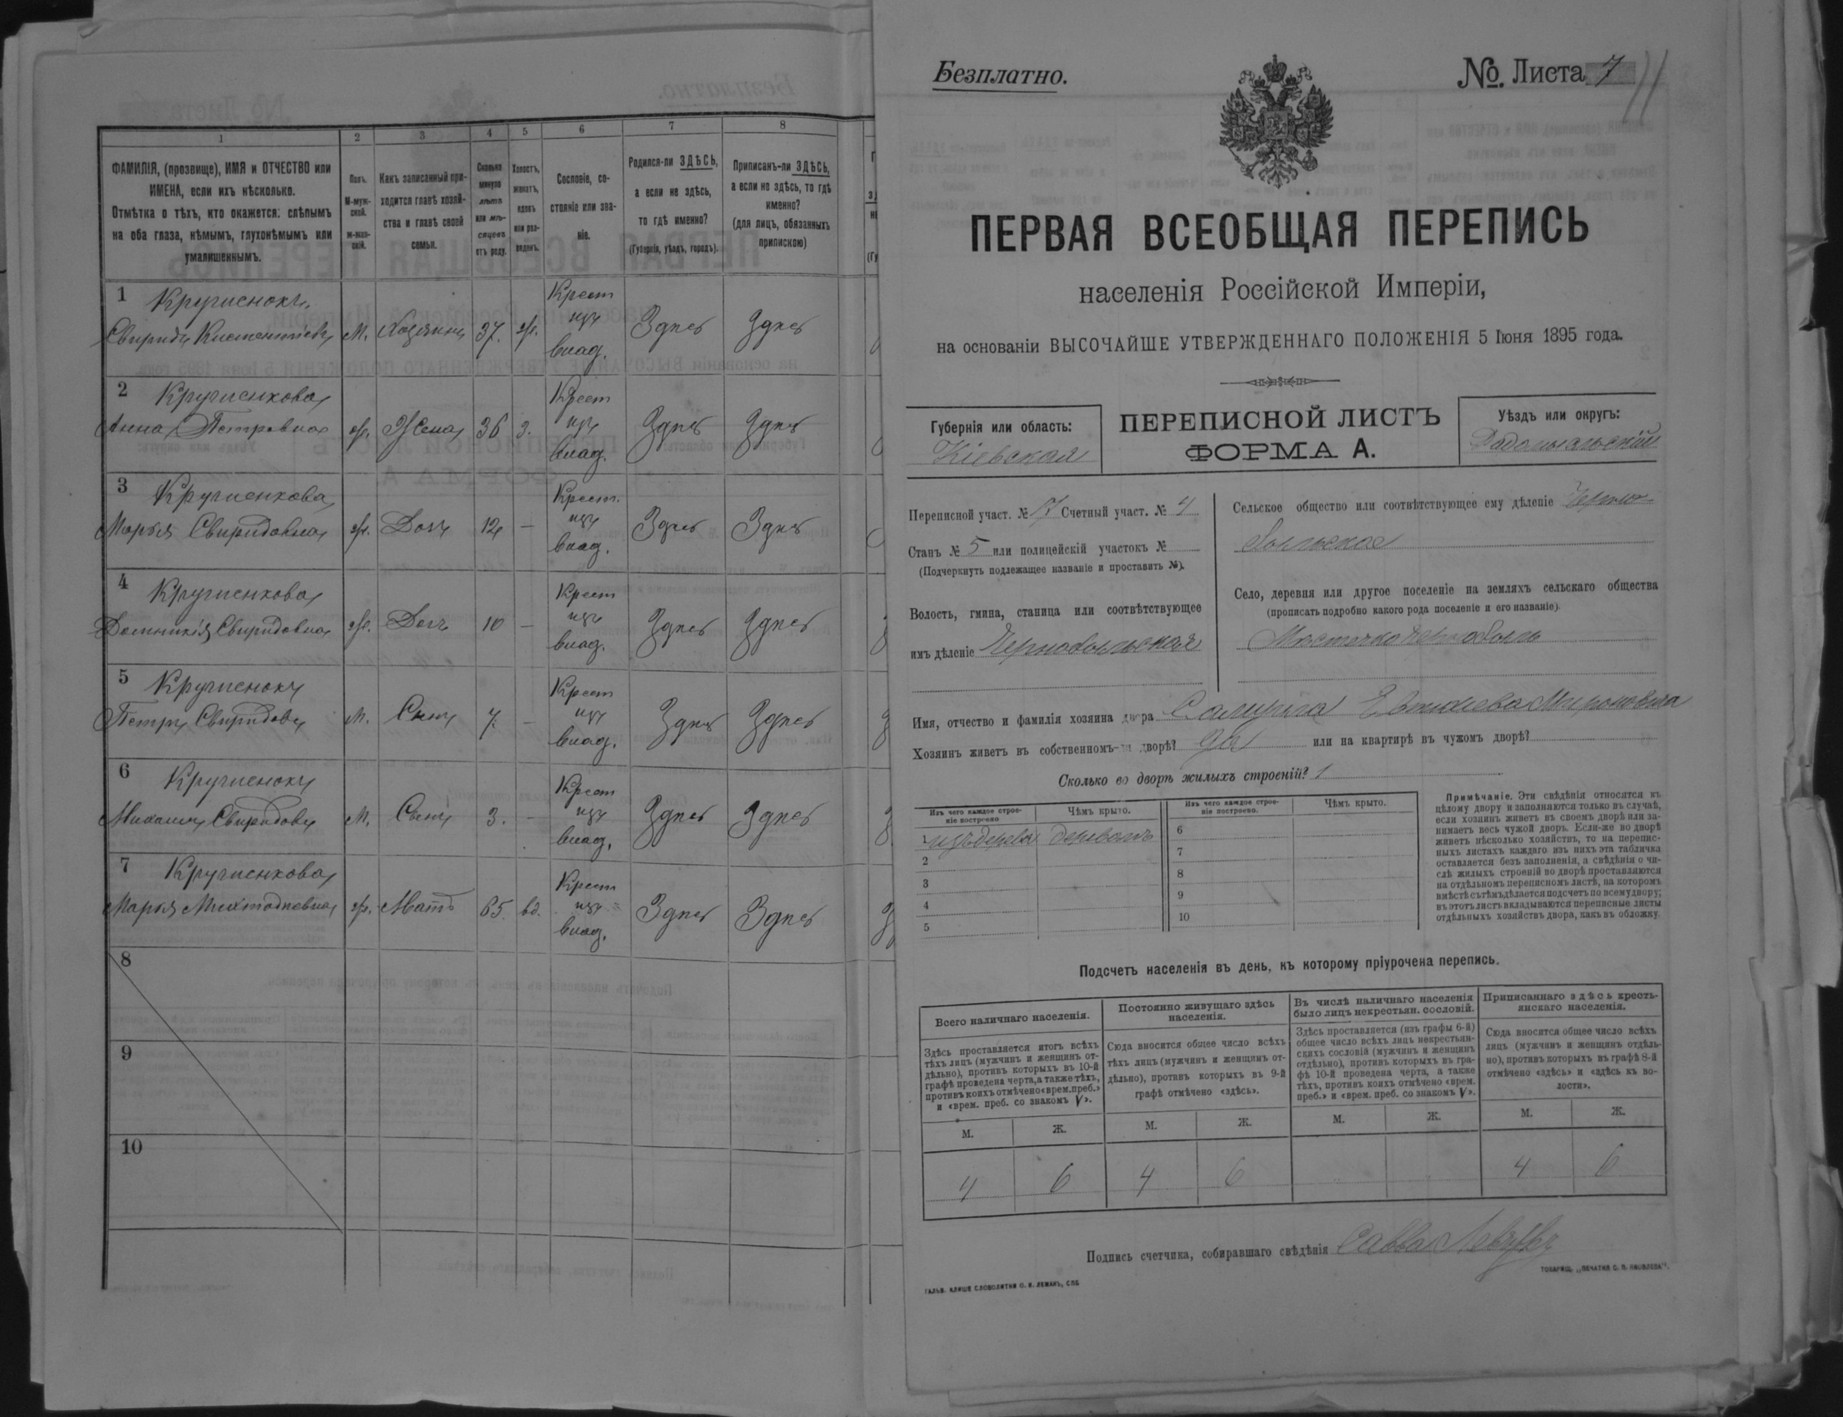 1
2
3
4
5
6
7
8
ФАМИЛІЯ, (прозвище), ИМЯ и ОТЧЕСТВО или
ИМЕНА, если ихъ нѣсколько.
Отмѣтка о тѣхъ, кто окажется: слѣпымъ
на оба глаза, нѣмымъ, глухонѣмымъ или
умалишеннымъ.
Полъ.
М-муж-
ской.
ж-жен-
скій.
Какъ записанный при-
ходится главѣ хозяй-
ства и главѣ своей
семьи.
Сколько
минуло
лѣтъ
или мѣ-
сяцевъ
отъ роду.
Холостъ,
женатъ,
вдовъ
или раз-
веденъ.
Сословіе, со-
стояніе или зва-
ніе.
Родился-ли ЗДѢСЬ,
а если не здѣсь,
то гдѣ именно?
(Губернія, уѣздъ, городъ).
Приписанъ-ли ЗДѢСЬ,
а если не здѣсь, то гдѣ
именно?
(для лицъ, обязанныхъ
припискою)
1
Свиридъ
М. Хозяинъ 37. Крест изъ влад. Здѣсь Здѣсь
2
Анна Петровна
Жена 36 Крест изъ влад. Здѣсь Здѣсь
3
Марья Свиридовна
Дочь 12 — Крест. изъ влад. Здѣсь Здѣсь
4
Домникія Свиридовна
Дочь 10 — Крест изъ влад. Здѣсь Здѣсь
5
Петръ Свиридовъ
М. Сынъ 7. — Крест изъ влад. Здѣсь Здѣсь
6
Михаилъ Свиридовъ
М. Сынъ 3. — Крест изъ влад. Здѣсь Здѣсь
7
Марья
Мать 65. вд. Крест изъ влад. Здѣсь Здѣсь
8
9
10
Безплатно.
№. Листа 7
ПЕРВАЯ ВСЕОБЩАЯ ПЕРЕПИСЬ
населенія Россійской Имперіи,
на основаніи ВЫСОЧАЙШЕ УТВЕРЖДЕННАГО ПОЛОЖЕНІЯ 5 Іюня 1895 года.
Губернія или область:
Кіевская
ПЕРЕПИСНОЙ ЛИСТЪ
ФОРМА А.
Уѣздъ или округъ:
Радомысльскій
Переписной участ. № 17 Счетный участ. № 4
Станъ № 5 или полицейскій участокъ №
(Подчеркнуть подлежащее названіе и проставить №).
Волость, гмина, станица или соотвѣтствующее
имъ дѣленіе Чернобыльская
Сельское общество или соотвѣтствующее ему дѣленіе Черно-
быльское
Село, деревня или другое поселеніе на земляхъ сельскаго общества
(прописать подробно какого рода поселеніе и его названіе)
Мѣстечко Чернобыль
Имя, отчество и фамилія хозяина двора
Хозяинъ живетъ въ собственномъ-ли дворѣ? Да или на квартирѣ въ чужомъ дворѣ?
Сколько во дворѣ жилыхъ строеній? 1
Изъ чего каждое строе-
ніе построено
Чѣмъ крыто.
Изъ чего каждое строе-
ніе построено.
Чѣмъ крыто.
1 изъ дерева деревомъ
2
3
4
5
6
7
8
9
10
Примѣчаніе. Эти свѣдѣнія относятся къ
цѣлому двору и заполняются только въ случаѣ,
если хозяинъ живетъ въ своемъ дворѣ или за-
нимаетъ весь чужой дворъ. Если-же во дворѣ
живетъ нѣсколько хозяйствъ, то на перепис-
ныхъ листахъ каждаго изъ нихъ эта табличка
оставляется безъ заполненія, а свѣдѣнія о чи-
слѣ жилыхъ строеній во дворѣ проставляются
на отдѣльномъ переписномъ листѣ, на которомъ
вмѣстѣ съ тѣмъ дѣлается подсчетъ по всему двору;
въ этотъ листъ вкладываются переписные листы
отдѣльныхъ хозяйствъ двора, какъ въ обложку.
Подсчетъ населенія въ день, къ которому пріурочена перепись.
Всего наличнаго населенія.
Постоянно живущаго здѣсь
населенія.
Въ числѣ наличнаго населенія
было лицъ некрестьян. сословій.
Приписаннаго здѣсь кресть-
янскаго населенія.
Здѣсь проставляется итогъ всѣхъ
тѣхъ лицъ (мужчинъ и женщинъ от-
дѣльно), противъ которыхъ въ 10-й
графѣ проведена черта, а также тѣхъ,
противъ коихъ отмѣчено «врем. преб.»
и «врем. преб. со знакомъ V».
Сюда вносится общее число всѣхъ
тѣхъ лицъ (мужчинъ и женщинъ от-
дѣльно), противъ которыхъ въ 9-й
графѣ отмѣчено «здѣсь».
Здѣсь проставляется (изъ графы 6-й)
общее число всѣхъ лицъ некрестьян-
скихъ сословій (мужчинъ и женщинъ
отдѣльно), противъ которыхъ въ гра-
фѣ 10-й проведена черта, а также
тѣхъ, противъ коихъ отмѣчено «врем.
преб.» и «врем. преб. со знакомъ V».
Сюда вносится общее число всѣхъ
лицъ (мужчинъ и женщинъ отдѣль-
но), противъ которыхъ въ графѣ 8-й
отмѣчено «здѣсь» и «здѣсь къ во-
лости».
М. Ж. М. Ж. М. Ж. М. Ж.
4 6 4 6 4 6
Подпись счетчика, собиравшаго свѣдѣнія Савва
ГАЛЬВ. КЛИШЕ СЛОВОЛИТНИ О. И. ЛЕМАНЪ, СПБ.
ТОВАРИЩ. „ПЕЧАТНЯ С. П. ЯКОВЛЕВА".